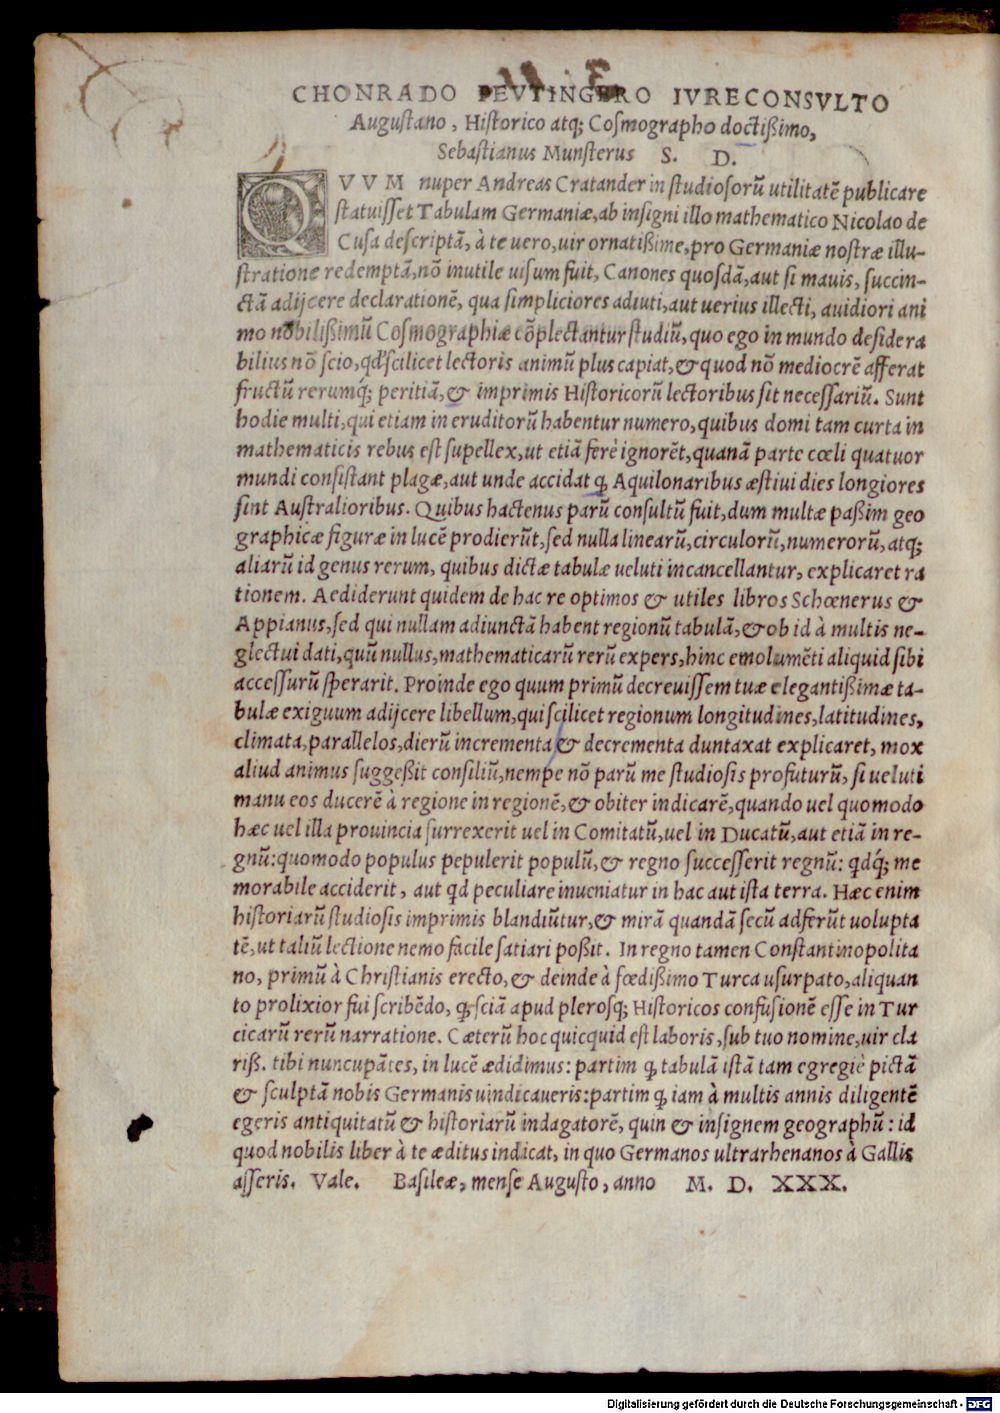 CHONRADO PEVTINGERO IVRECONSVLTO
Augustano, Historico atq; Cosmographo doctißimo,
Sebastianus Munsterus S. D.
QVVM nuper Andreas Cratander in studiosorū utilitatē publicare
statuisset Tabulam Germaniæ, ab insigni illo mathematico Nicolao de
Cusa descriptā, à te uero, uir ornatißime, pro Germaniæ nostræ illu-
stratione redemptā, nō inutile uisum fuit, Canones quosdā, aut si mauis, succin-
ctā adijcere declarationē, qua simpliciores adiuti, aut uerius illecti, auidiori ani
mo nobilißimū Cosmographiæ cōplectantur studiū, quo ego in mundo desidera
bilius nō scio, qđ scilicet lectoris animū plus capiat, & quod nō mediocrē afferat
fructū rerumq́; peritiā, & imprimis Historicorū lectoribus sit necessariū. Sunt
hodie multi, qui etiam in eruditorū habentur numero, quibus domi tam curta in
mathematicis rebus est supellex, ut etiā ferè ignorēt, quanā parte cœli quatuor
mundi consistant plagæ, aut unde accidat ꝙ Aquilonaribus æstiui dies longiores
sint Australioribus. Quibus hactenus parū consultū fuit, dum multæ paßim geo
graphicæ figuræ in lucē prodierūt, sed nulla linearū, circulorū, numerorū, atq;
aliarū id genus rerum, quibus dictæ tabulæ ueluti incancellantur, explicaret ra
tionem. Aediderunt quidem de hac re optimos & utiles libros Schœnerus &
Appianus, sed qui nullam adiunctā habent regionū tabulā, & ob id à multis ne-
glectui dati, quū nullus, mathematicarū rerū expers, hinc emolumēti aliquid sibi
accessurū sperarit. Proinde ego quum primū decreuissem tuæ elegantißimæ ta-
bulæ exiguum adijcere libellum, qui scilicet regionum longitudines, latitudines,
climata, parallelos, dierū incrementa & decrementa duntaxat explicaret, mox
aliud animus suggeßit consiliū, nempe nō parū me studiosis profuturū, si ueluti
manu eos ducerē à regione in regionē, & obiter indicarē, quando uel quomodo
hæc uel illa prouincia surrexerit uel in Comitatū, uel in Ducatū, aut etiā in re-
gnū: quomodo populus pepulerit populū, & regno successerit regnū: qđq́; me
morabile acciderit, aut qđ peculiare inueniatur in hac aut ista terra. Hæc enim
historiarū studiosis imprimis blandiūtur, & mirā quandā secū adferūt uolupta
tē, ut taliū lectione nemo facile satiari poßit. In regno tamen Constantinopolita
no, primū à Christianis erecto, & deinde à fœdißimo Turca usurpato, aliquan
to prolixior fui scribēdo, ꝙ sciā apud plerosq; Historicos confusionē esse in Tur
cicarū rerū narratione. Cæterū hoc quicquid est laboris, sub tuo nomine, uir cla
riß. tibi nuncupātes, in lucē ædidimus: partim ꝙ tabulā istā tam egregiè pictā
& sculptā nobis Germanis uindicaueris: partim ꝙ iam à multis annis diligentē
egeris antiquitatū & historiarū indagatorē, quin & insignem geographū: id
quod nobilis liber à te æditus indicat, in quo Germanos ultrarhenanos à Gallis
asseris. Vale. Basileæ, mense Augusto, anno M. D. XXX.
Digitalisierung gefördert durch die Deutsche Forschungsgemeinschaft - DFG